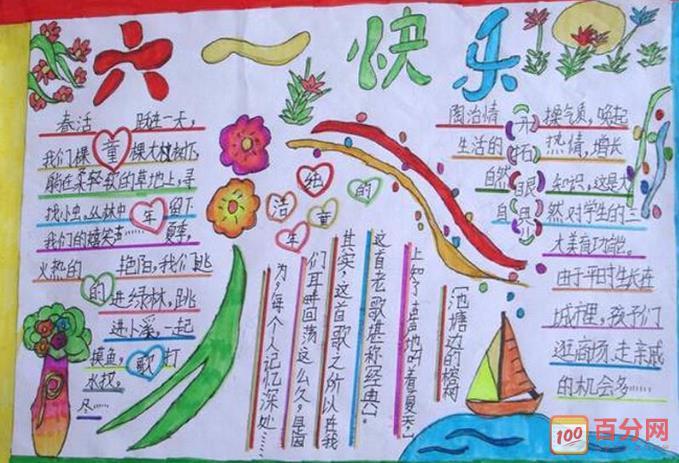 六一快乐
春活 跃进一天，
我们棵童棵大树下，
躺在柔轻软的草地上，寻
找小虫，丛林中年留下
我们的嬉笑声……夏季，
火热的的艳阳，我们跳
进绿林，跳
进小溪，一起
摸鱼，歌打
水仗。
尽……
纯的
洁童
年
陶冶情开操气质，唤起
生活的拓热情，增长
自然眼知识，这是大
自界然对学生的三
大美育功能。
由于平时生长在
城市里，孩子们
逛商场，走亲戚
的机会多……
〔池塘边的榕树
上知了声声地叫着夏天〕
这首老歌堪称经典。
其实，这首歌之所以在我
们耳畔回荡这么久，是因
为，每个人记忆深处……
100 百分网